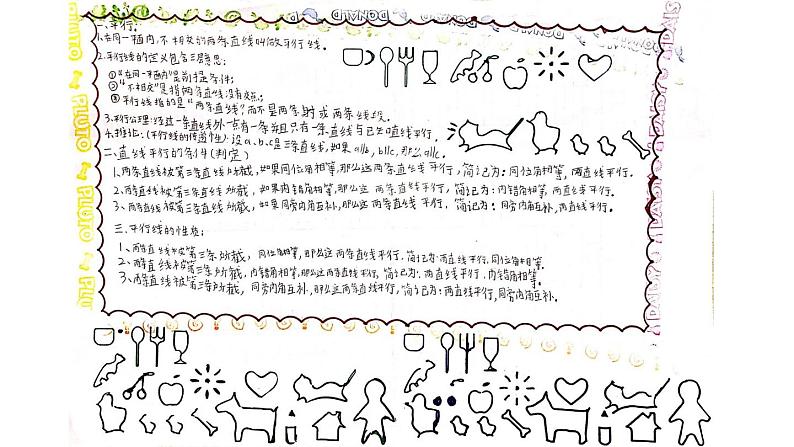 DONALD
一、平行:
1.在同一平面内,不相交的两条直线叫做平行线。
2.平行线的定义包含三层意思:
①“在同一平面内”是前提条件;
②“不相交”是指两条直线没有交点;
③平行线指的是“两条直线”而不是两条射或两条线段。
3.平行公理:经过一条直线外一点有一条并且只有一条直线与已知直线平行.
4.推论:(平行线的传递性).设a、b、c是三条直线,如果a∥b,b∥c,那么a∥c.
二、直线平行的条件(判定)
1.两条直线被第三条直线所截,如果同位角相等,那么这两条直线平行,简记为:同位角相等,两直线平行.
2.两条直线被第三条直线所截,如果内错角相等,那么这两条直线平行,简记为:内错角相等,两直线平行.
3、两条直线被第三条直线所截,如果同旁内角互补,那么这两条直线平行,简记为:同旁内角互补,两直线平行.
三.平行线的性质:
1、两条直线被第三条所截,同位角相等,那么这两条直线平行.简记为:两直线平行,同位角相等.
2、两条直线被第三条所截,内错角相等,那么这两条直线平行,简记为:两直线平行,内错角相等.
3、两条直线被第三条所截,同旁内角互补,那么这两条直线平行,简记为:两直线平行,同旁内角互补.
PLUTO
PLUTO
PLUTO
DAISY
DAISY